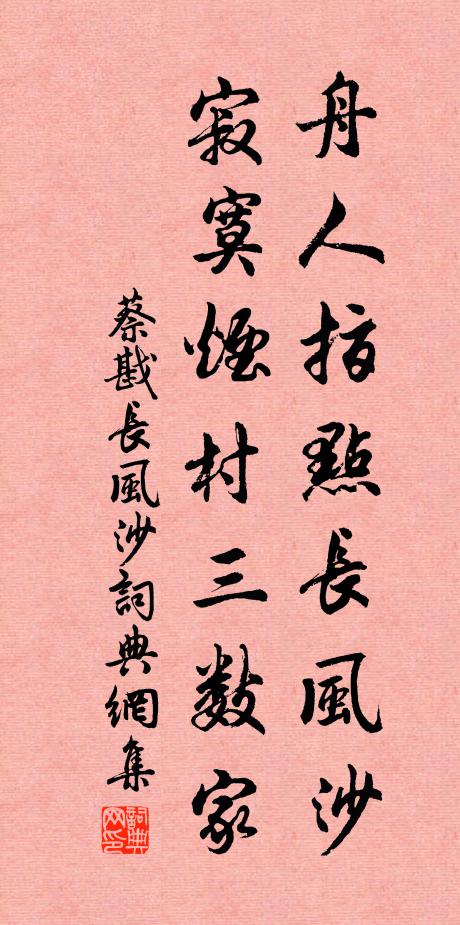 舟人指點長風沙
寂寞煙村三數家
蔡戡長風沙詞典網集
詞典网印